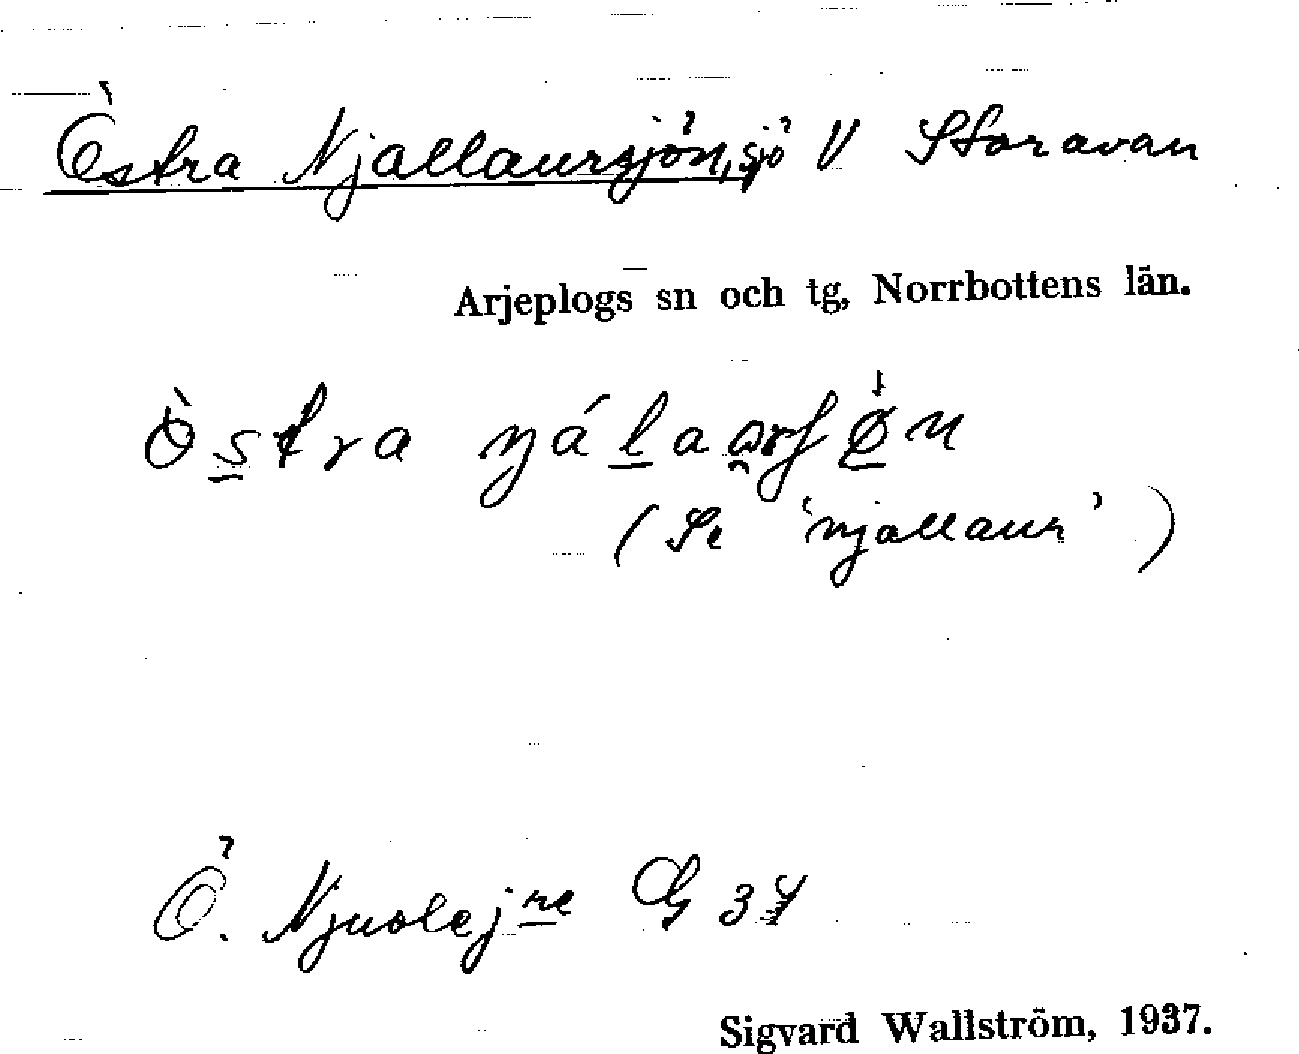 Östra Njallaursjön, sjö V Storavan
Arjeplogs sn och tg, Norrbottens län.
Östra
(Se 'njallaur')
Ö. Njuolejre G 34
Sigvard Wallström, 1937.